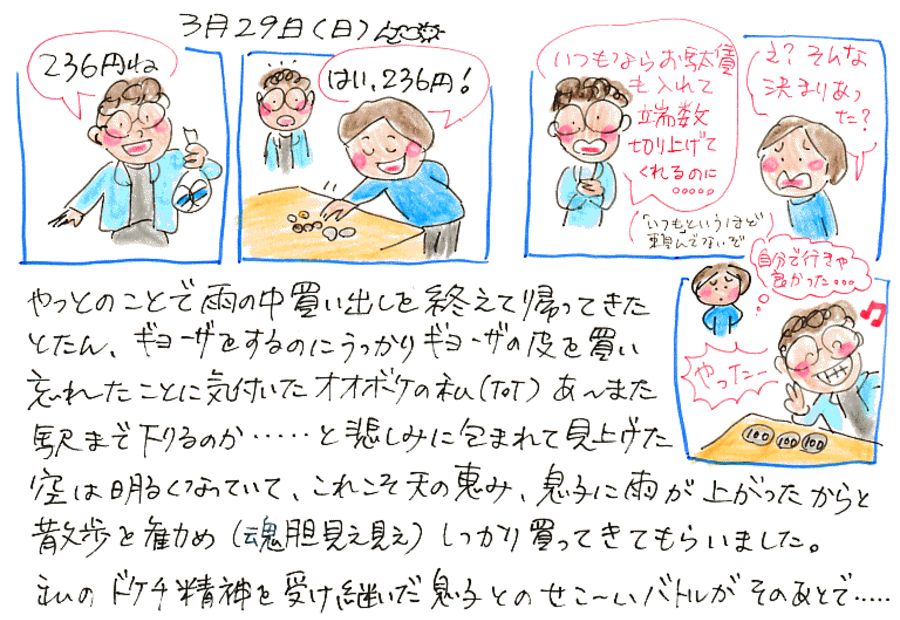 3月29日(日)
236円ね
はい、236円!
いつもならお駄賃
も入れて
端数
切り上げて
くれるのに
・・・・・
え?そんな
決まりあっ
た?
「いつも」というほど
頼んでないぞ
自分で行きゃ
良かった・・・
やったー
100 100 100
やっとのことで雨の中買い出しを終えて帰ってきた
とたん、ギョーザをするのにうっかりギョーザの皮を買い
忘れたことに気付いたオオボケの私(ToT)あ〜また
駅まで下りるのか・・・・・・と悲しみに包まれて見上げた
空は明るくなっていて、これこそ天の恵み、息子に雨が上がったからと
散歩を勧め(魂胆見え見え)しっかり買ってきてもらいました。
私のドケチ精神を受け継いだ息子とのせこ〜いバトルがそのあとで・・・・・